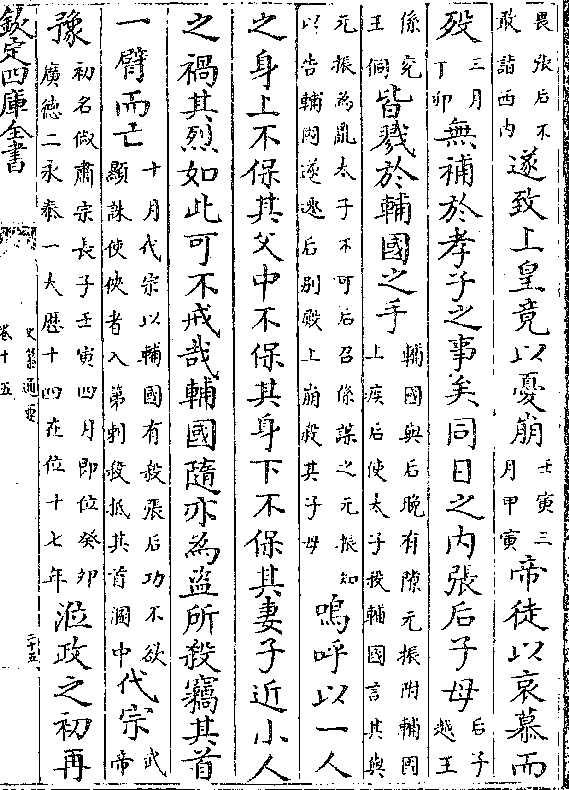 畏張后不敢詣西内遂致上皇竟以憂崩壬寅三月甲寅帝徒以哀慕而
殁三月丁卯無補於孝子之事矣同日之内張后子母后子越王
係兖王侗皆戮於輔國之手輔國與后晚有隙元振附輔國上疾后使太子殺輔國言其與
元振為亂太子不可后召係謀之元振知以告輔國遂遷后别殿上崩殺其子母嗚呼以一人
之身上不保其父中不保其身下不保其妻子近小人
之禍其烈如此可不戒哉輔國隨亦為盗所殺竊其首
一臂而亡十月代宗以輔國有殺張后功不欲顯誅使俠者入第刺殺抵其首溷中代宗武帝
豫初名俶肅宗長子壬寅四月即位癸卯廣徳二永泰一大歴十四在位十七年涖政之初再
欽定四庫全書
卷十五
二十五